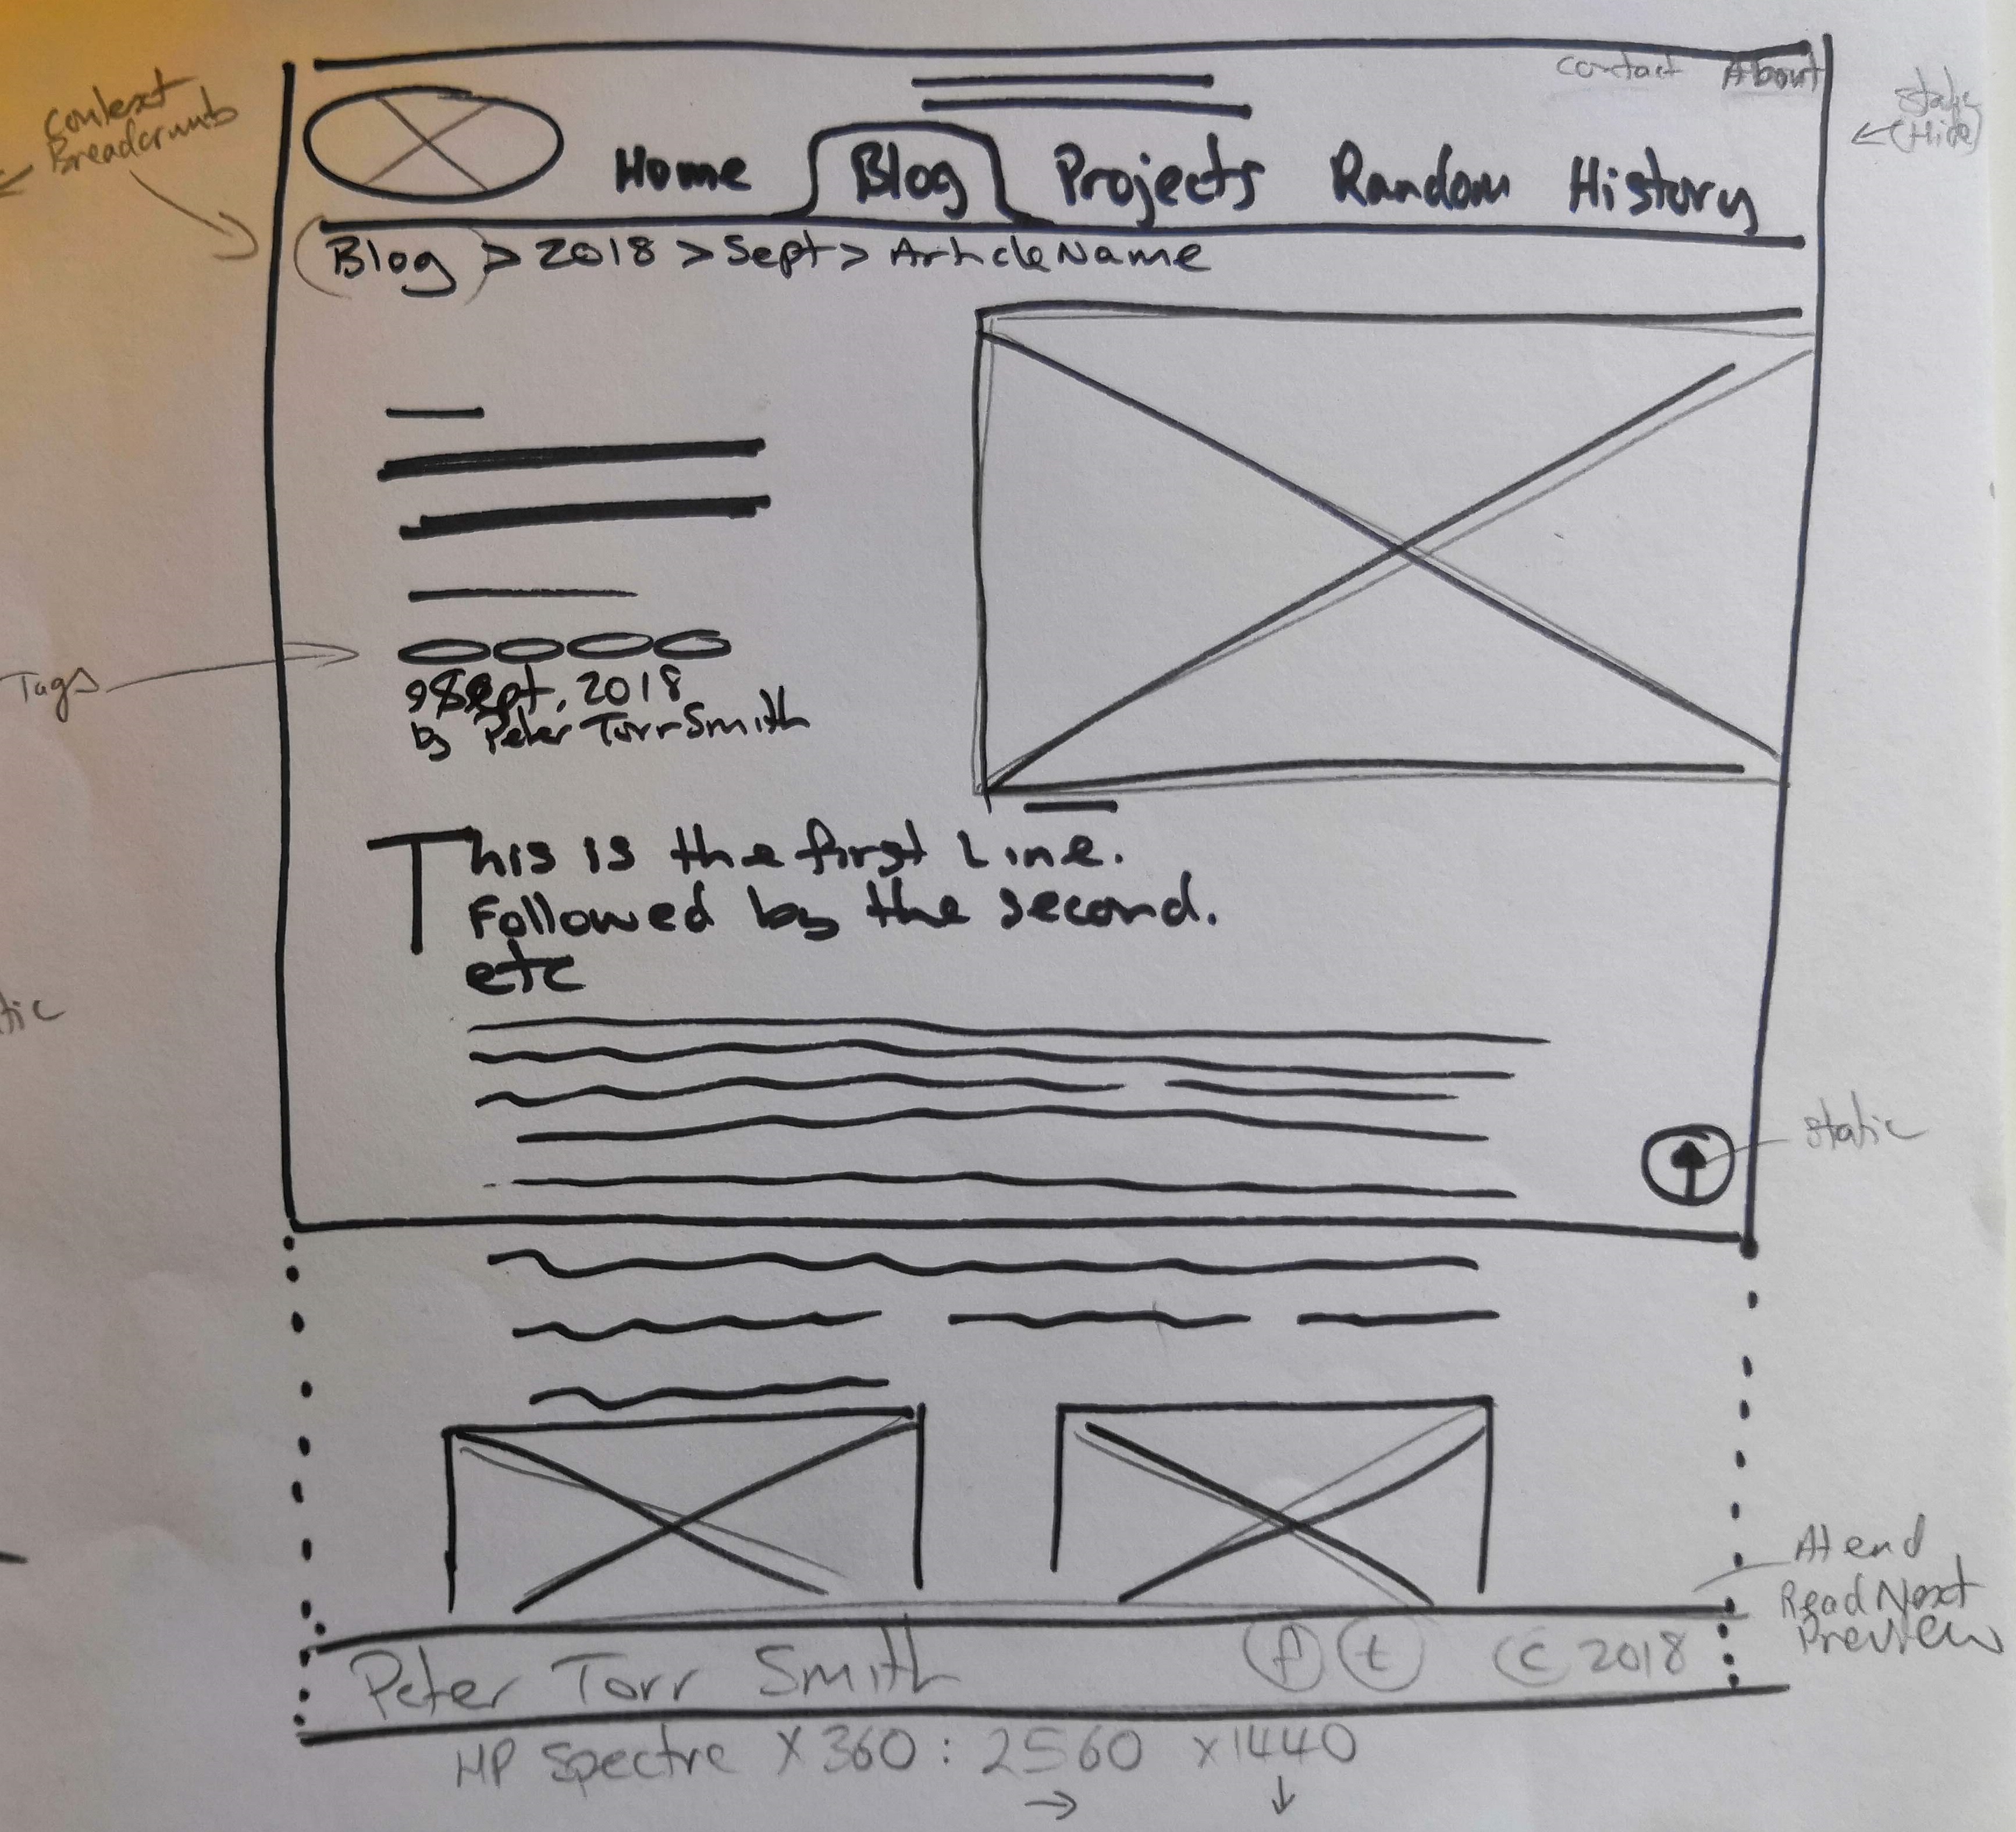 contact About
Context
Breadcrumb
Static
(Hide)
Home Blog Projects Random History
Blog > 2018 > Sept > Article Name
Tags
9 Sept, 2018
by Peter Torr Smith
This is the first Line.
Followed by the second.
etc
tic
static
At end
Read Next
Preview
Peter Torr Smith f t © 2018
HP Spectre X360 : 2560 x1440